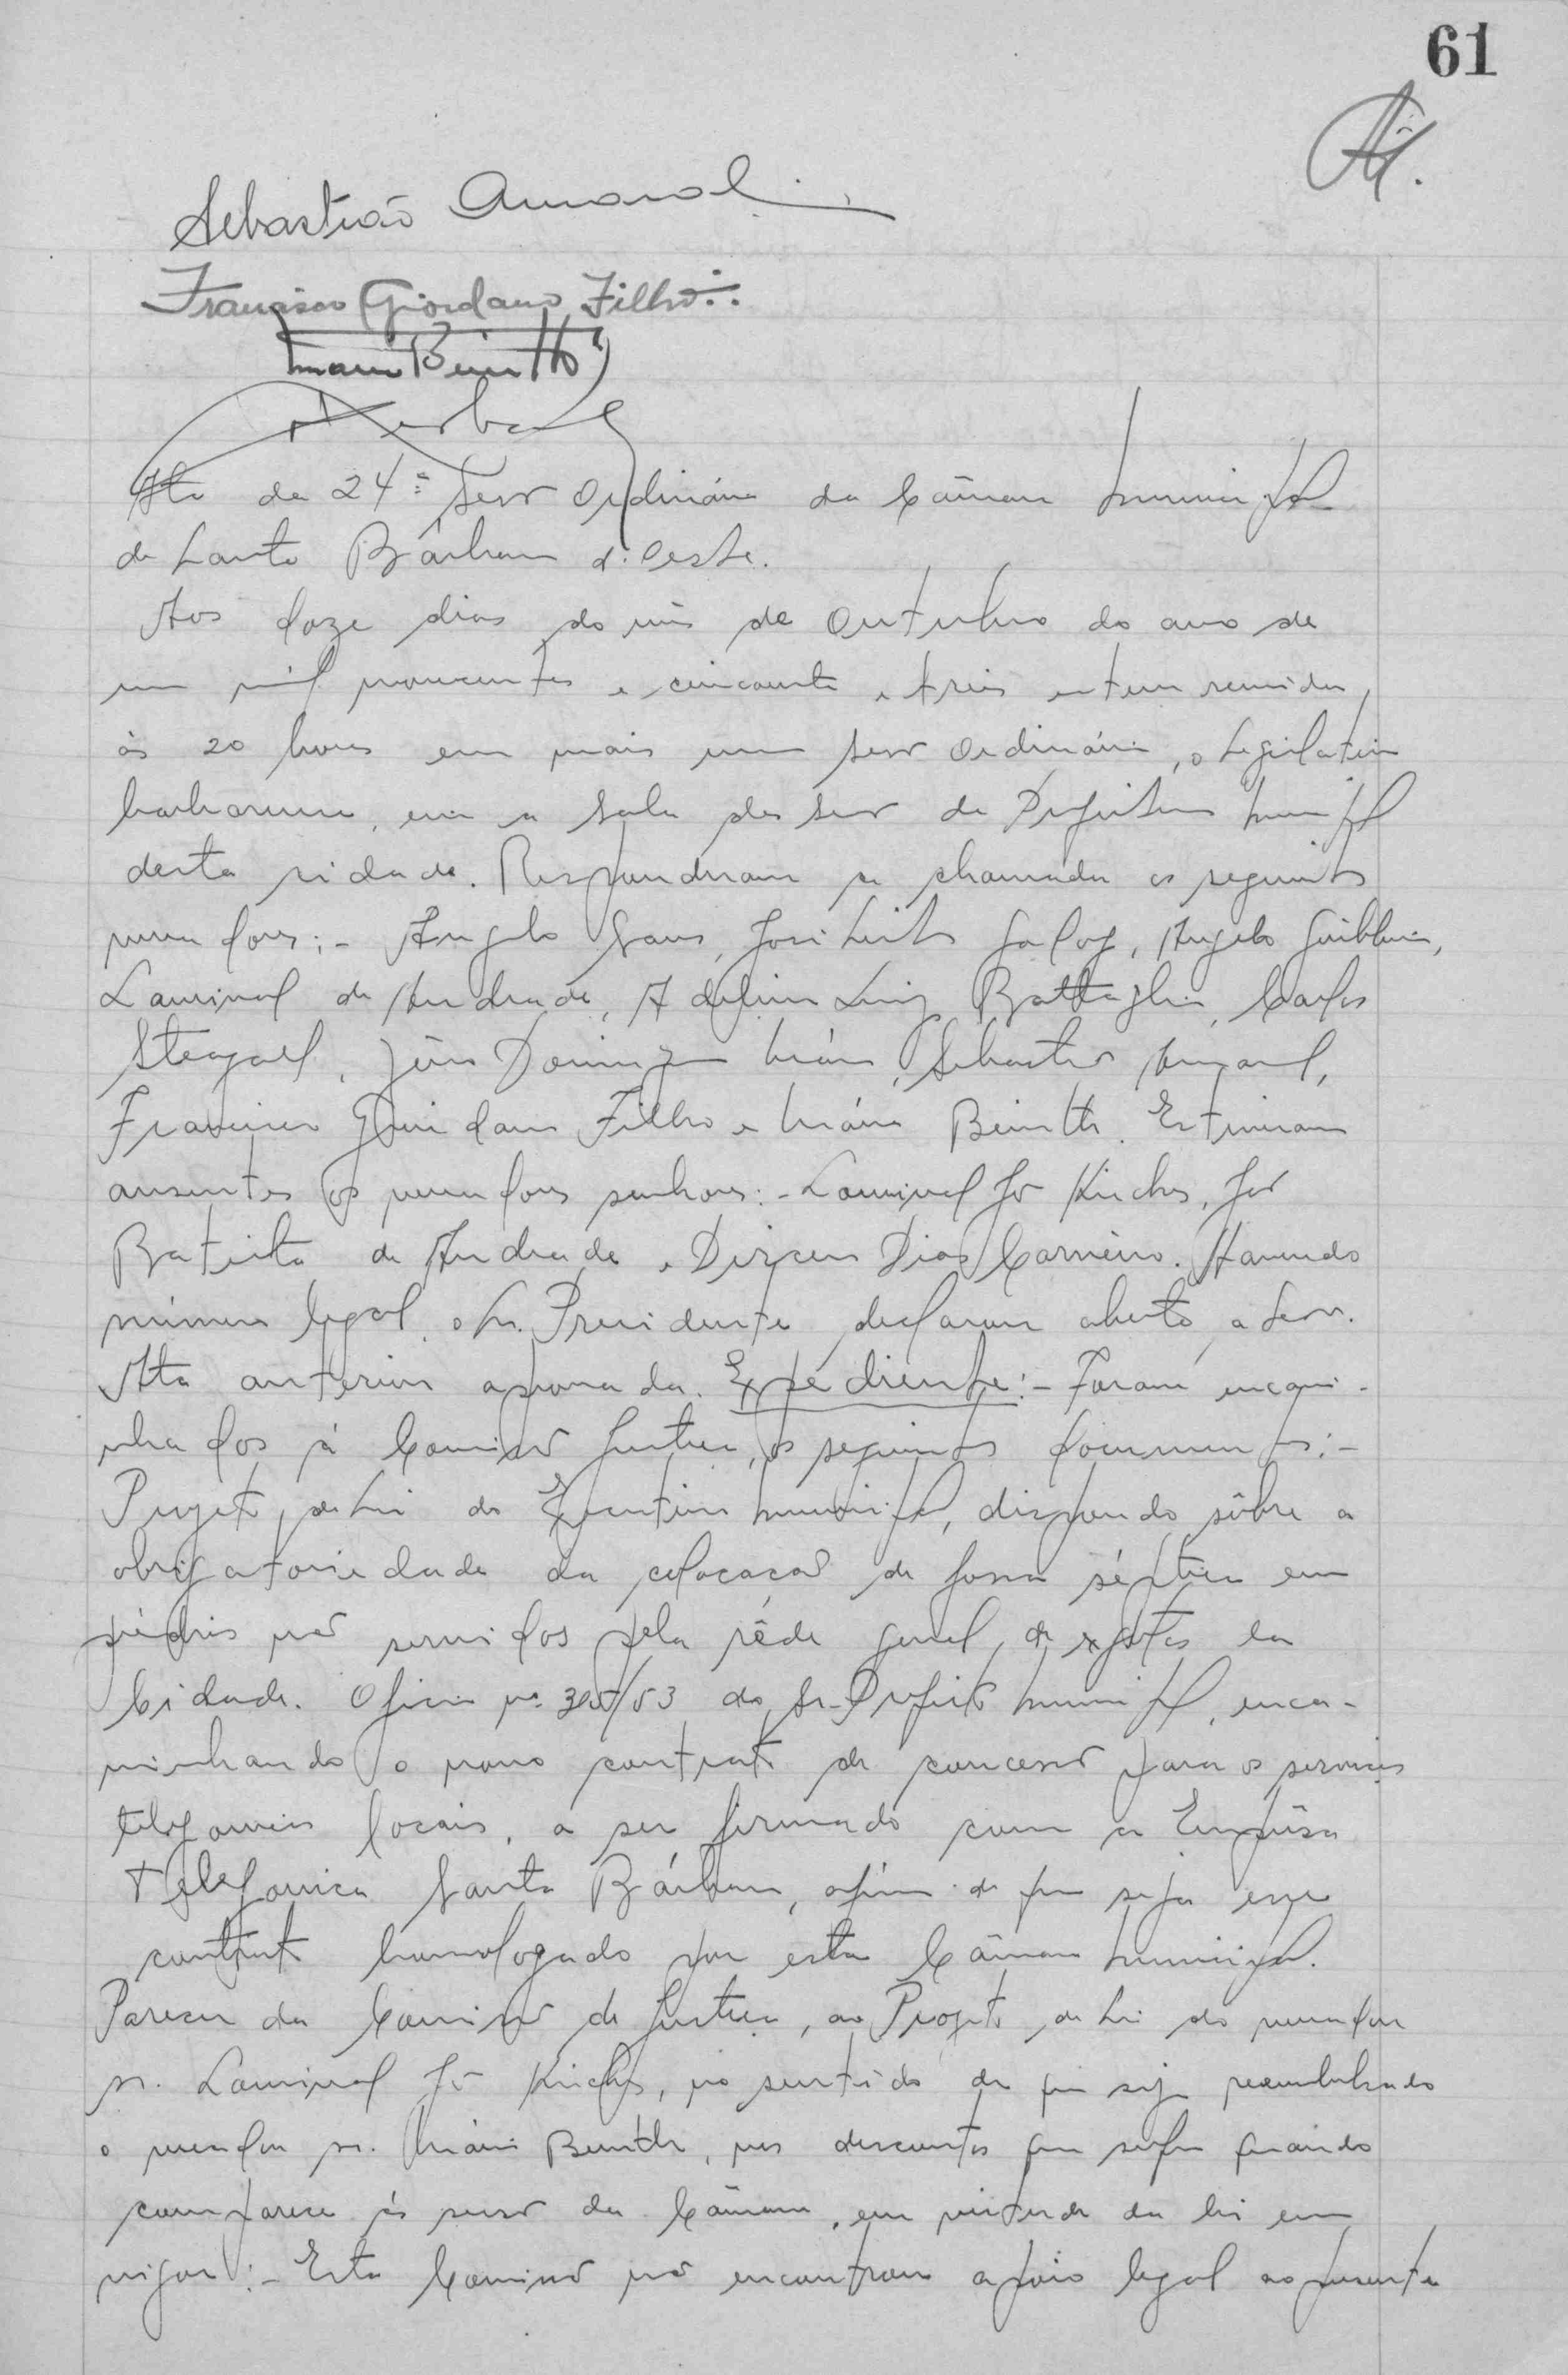 61
Sebastião Amaral
Francisco Giordano Filho
Mario Beinotti
Ata da 24ª Sessão Ordinária da Câmara Municipal
de Santa Bárbara d'Oeste.
Aos doze dias do mês de Outubro do ano de
um mil novecentos e cincoenta e treis esteve reunida,
às 20 horas em mais uma sessão Ordinária, o Legislativo
barbarense, em a Sala das Sessões da Prefeitura Municipal
desta cidade. Responderam a chamada os seguintes
vereadores:- Angelo Sans, José Luis Angelo
Laurival de Andrade, Adelino Luiz Battaglia, Carlos
Steagall, Domingos Mário, Sebastião Amaral,
Francisco Giordano Filho e Mário Beinotti. Estiveram
ausentes os vereadores senhores:- Laurival José
Batista de Andrade e Dirceu Dias Carneiro. Havendo
número legal, o Sr. Presidente declarou aberta a sessão.
Ata anterior aprovada. Expediente:- Foram encami-
nhados à Comissão Justiça, os seguintes documentos:-
Projeto de Lei do Executivo Municipal, dispondo sôbre a
obrigatoriedade da colocação de fossa séptica em
prédios não servidos pela rêde geral de exgotos da
Cidade. Oficio nº do Sr. Prefeito Municipal, enca-
minhando o novo contrato de concessão para os serviços
telefonicos locais, a ser firmado com a Emprêsa
Telefonica Santa Bárbara, afim de que seja esse
contrato homologado por esta Câmara Municipal.
Parecer da Comissão de Justiça, ao Projeto de Lei do vereador
sr. Laurival José no sentido de que seja reembolsado
o vereador sr. Mário Beinotti, nos descontos que sofre quando
comparece ás sessões da Câmara, em virtude da lei em
vigor:- Esta Comissão não encontrou apoio legal ao presente